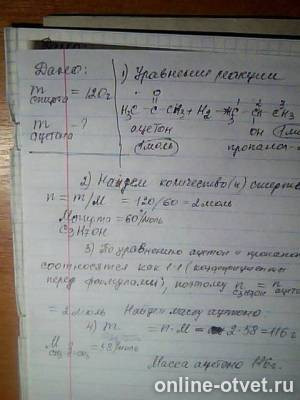 Дано:
m спирта = 120г
m ацетона - ?
1) Уравнение реакции
O
H₃C - C - CH₃ + H₂ → H₃C - CH - CH₃
3 2
ацетон он 1 моль
1 моль пропанол-
2) Найдем количество (n) спирта
n = m/M = 120/60 = 2 моль
M спирта = 60 г/моль
C₃H₇OH
3) По уравнению ацетон и пропанол
соотносятся как 1:1 (коэффициенты
перед формулами), поэтому n C₃H₇OH = n ацет
= 2 моль Найдем массу ацетона
4) m = n · M = 2 · 58 = 116 г.
= 58 г/моль
Масса ацетона 116 г.
online-otvet.ru